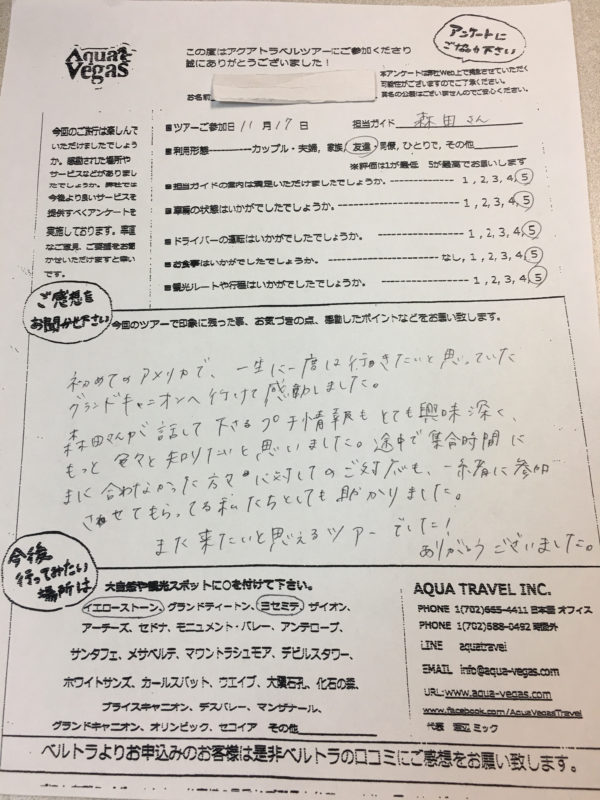 Aqua Vegas
この度はアクアトラベルツアーにご参加くださり
誠にありがとうございました！
アンケートに
ご協力下さい
本アンケートは弊社Web上で掲載させていただく
可能性がございますのでご了承ください。
実名の公表はございませんのでご安心ください。
お名前
今回のご旅行は楽しんで
いただけましたでしょう
か。感動された場所や
サービスなどがありまし
たでしょうか。弊社では
今後より良いサービスを
提供すべくアンケートを
実施しております。率直
なご意見、ご要望をお聞
かせいただけますと幸い
です。
■ツアーご参加日 11月17日 担当ガイド 森田さん
■利用形態 カップル・夫婦, 家族, 友達・同僚, ひとりで, その他
※評価は1が最低 5が最高でお願いします
■担当ガイドの案内は満足いただけましたでしょうか。 1, 2, 3, 4, 5
■車輌の状態はいかがでしたでしょうか。 1, 2, 3, 4, 5
■ドライバーの運転はいかがでしたでしょうか。 1, 2, 3, 4, 5
■お食事はいかがでしたでしょうか。 なし, 1, 2, 3, 4, 5
■観光ルートや行程はいかがでしたでしょうか。 1, 2, 3, 4, 5
ご感想を
お聞かせ下さい
今回のツアーで印象に残った事、お気づきの点、感動したポイントなどをお願い致します。
初めてのアメリカで、一生に一度は行きたいと思っていた
グランドキャニオンへ行けて感動しました。
森田さんが話して下さるプチ情報もとても興味深く、
もっと色々と知りたいと思いました。途中で集合時間に
まに合わなかった方々に対してのご対応も、一緒に参加
させてもらってる私たちとしても助かりました。
また来たいと思えるツアーでした！
ありがとうございました。
今後
行ってみたい
場所は
大自然や観光スポットに○を付けて下さい。
イエローストーン、グランドティートン、ヨセミテ、ザイオン、
アーチーズ、セドナ、モニュメント・バレー、アンテロープ、
サンタフェ、メサベルデ、マウントラシュモア、デビルスタワー、
ホワイトサンズ、カールスバット、ウエイブ、大隕石孔、化石の森、
ブライスキャニオン、デスバレー、マンザナール、
グランドキャニオン、オリンピック、セコイア その他
AQUA TRAVEL INC.
PHONE 1(702)665-4411 日本語 オフィス
PHONE 1(702)688-0492 時間外
LINE aquatravel
EMAIL info@aqua-vegas.com
URL: www.aqua-vegas.com
www.facebook.com/AquaVegasTravel
代表 ミック
ベルトラよりお申込みのお客様は是非ベルトラの口コミにご感想をお願い致します。